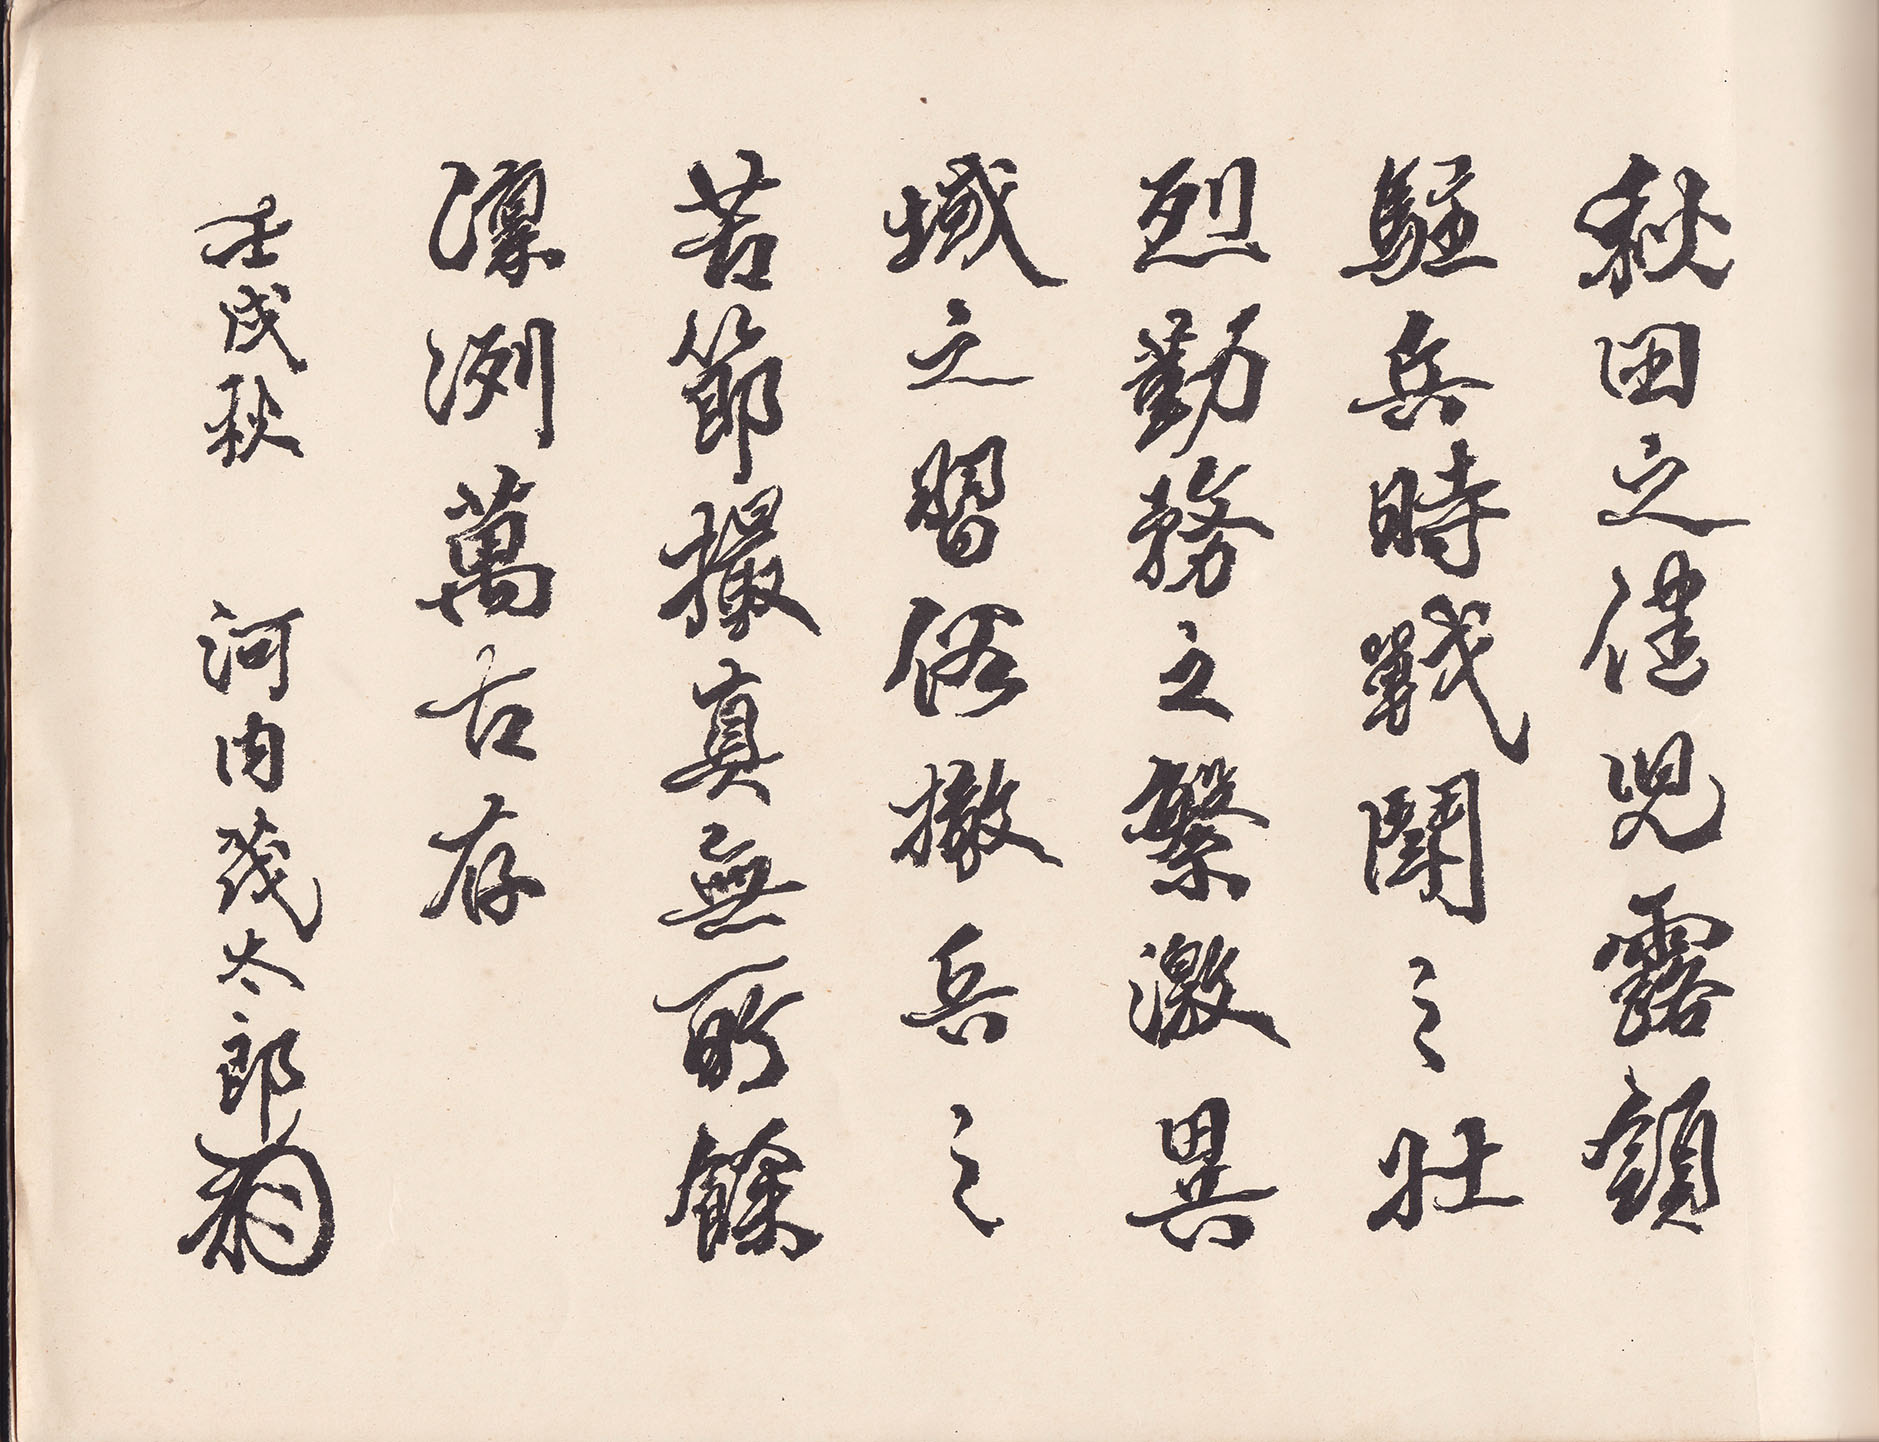 秋田之健児露領
駐兵時戦闘之壮
烈勤務之繁激異
域之習俗撤兵之
苦節撮真無所餘
凛冽萬古存
壬戌秋 河内茂太郎